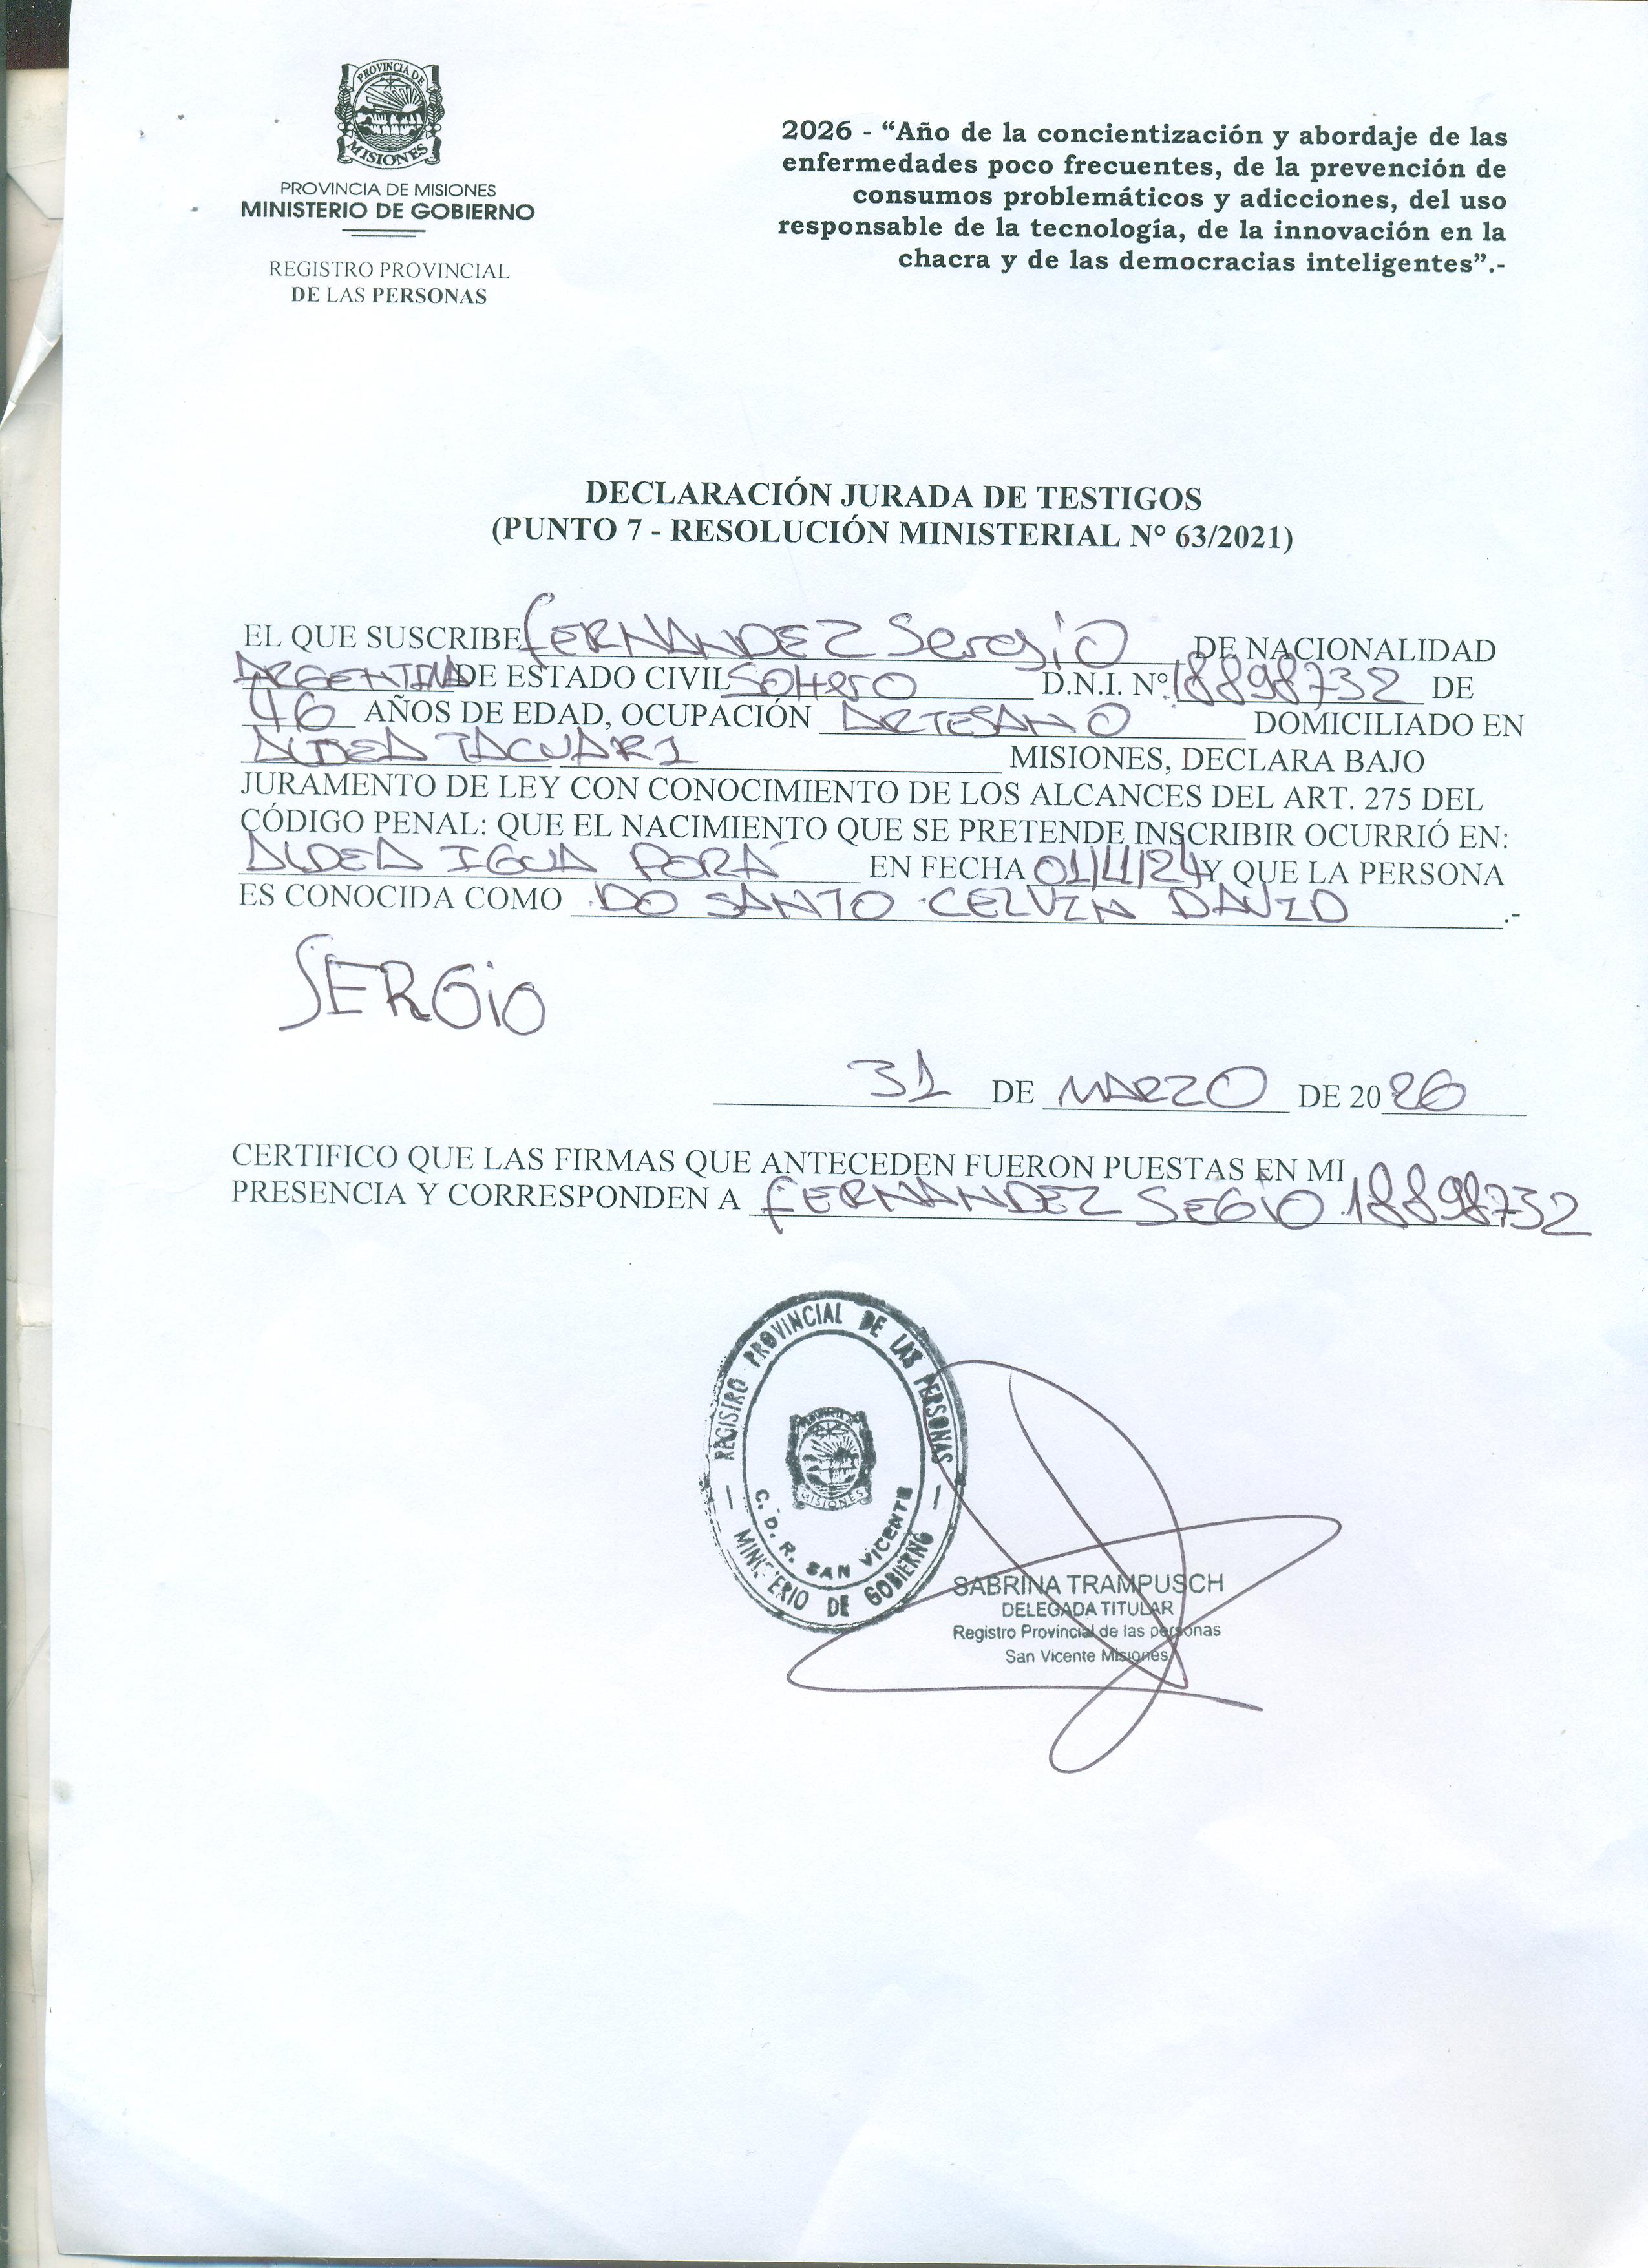 PROVINCIA DE
MISIONES
PROVINCIA DE MISIONES
MINISTERIO DE GOBIERNO
REGISTRO PROVINCIAL
DE LAS PERSONAS
2026 - “Año de la concientización y abordaje de las
enfermedades poco frecuentes, de la prevención de
consumos problemáticos y adicciones, del uso
responsable de la tecnología, de la innovación en la
chacra y de las democracias inteligentes”.-
DECLARACIÓN JURADA DE TESTIGOS
(PUNTO 7 - RESOLUCIÓN MINISTERIAL N° 63/2021)
EL QUE SUSCRIBE FERNANDEZ Sergio DE NACIONALIDAD
ARGENTINA DE ESTADO CIVIL SOLTERO D.N.I. N° 18898732 DE
46 AÑOS DE EDAD, OCUPACIÓN ARTESANO DOMICILIADO EN
ALDEA TACUARI MISIONES, DECLARA BAJO
JURAMENTO DE LEY CON CONOCIMIENTO DE LOS ALCANCES DEL ART. 275 DEL
CÓDIGO PENAL: QUE EL NACIMIENTO QUE SE PRETENDE INSCRIBIR OCURRIÓ EN:
ALDEA IGUA PORÁ EN FECHA Y QUE LA PERSONA
ES CONOCIDA COMO DO SANTO CELVIN DAVID .-
SERGIO
31 DE MARZO DE 2026
CERTIFICO QUE LAS FIRMAS QUE ANTECEDEN FUERON PUESTAS EN MI
PRESENCIA Y CORRESPONDEN A FERNANDEZ SEGIO 18898732
REGISTRO PROVINCIAL DE LAS PERSONAS
MISIONES
C. D. R. SAN VICENTE
MINISTERIO DE GOBIERNO
SABRINA TRAMPUSCH
DELEGADA TITULAR
Registro Provincial de las personas
San Vicente Misiones